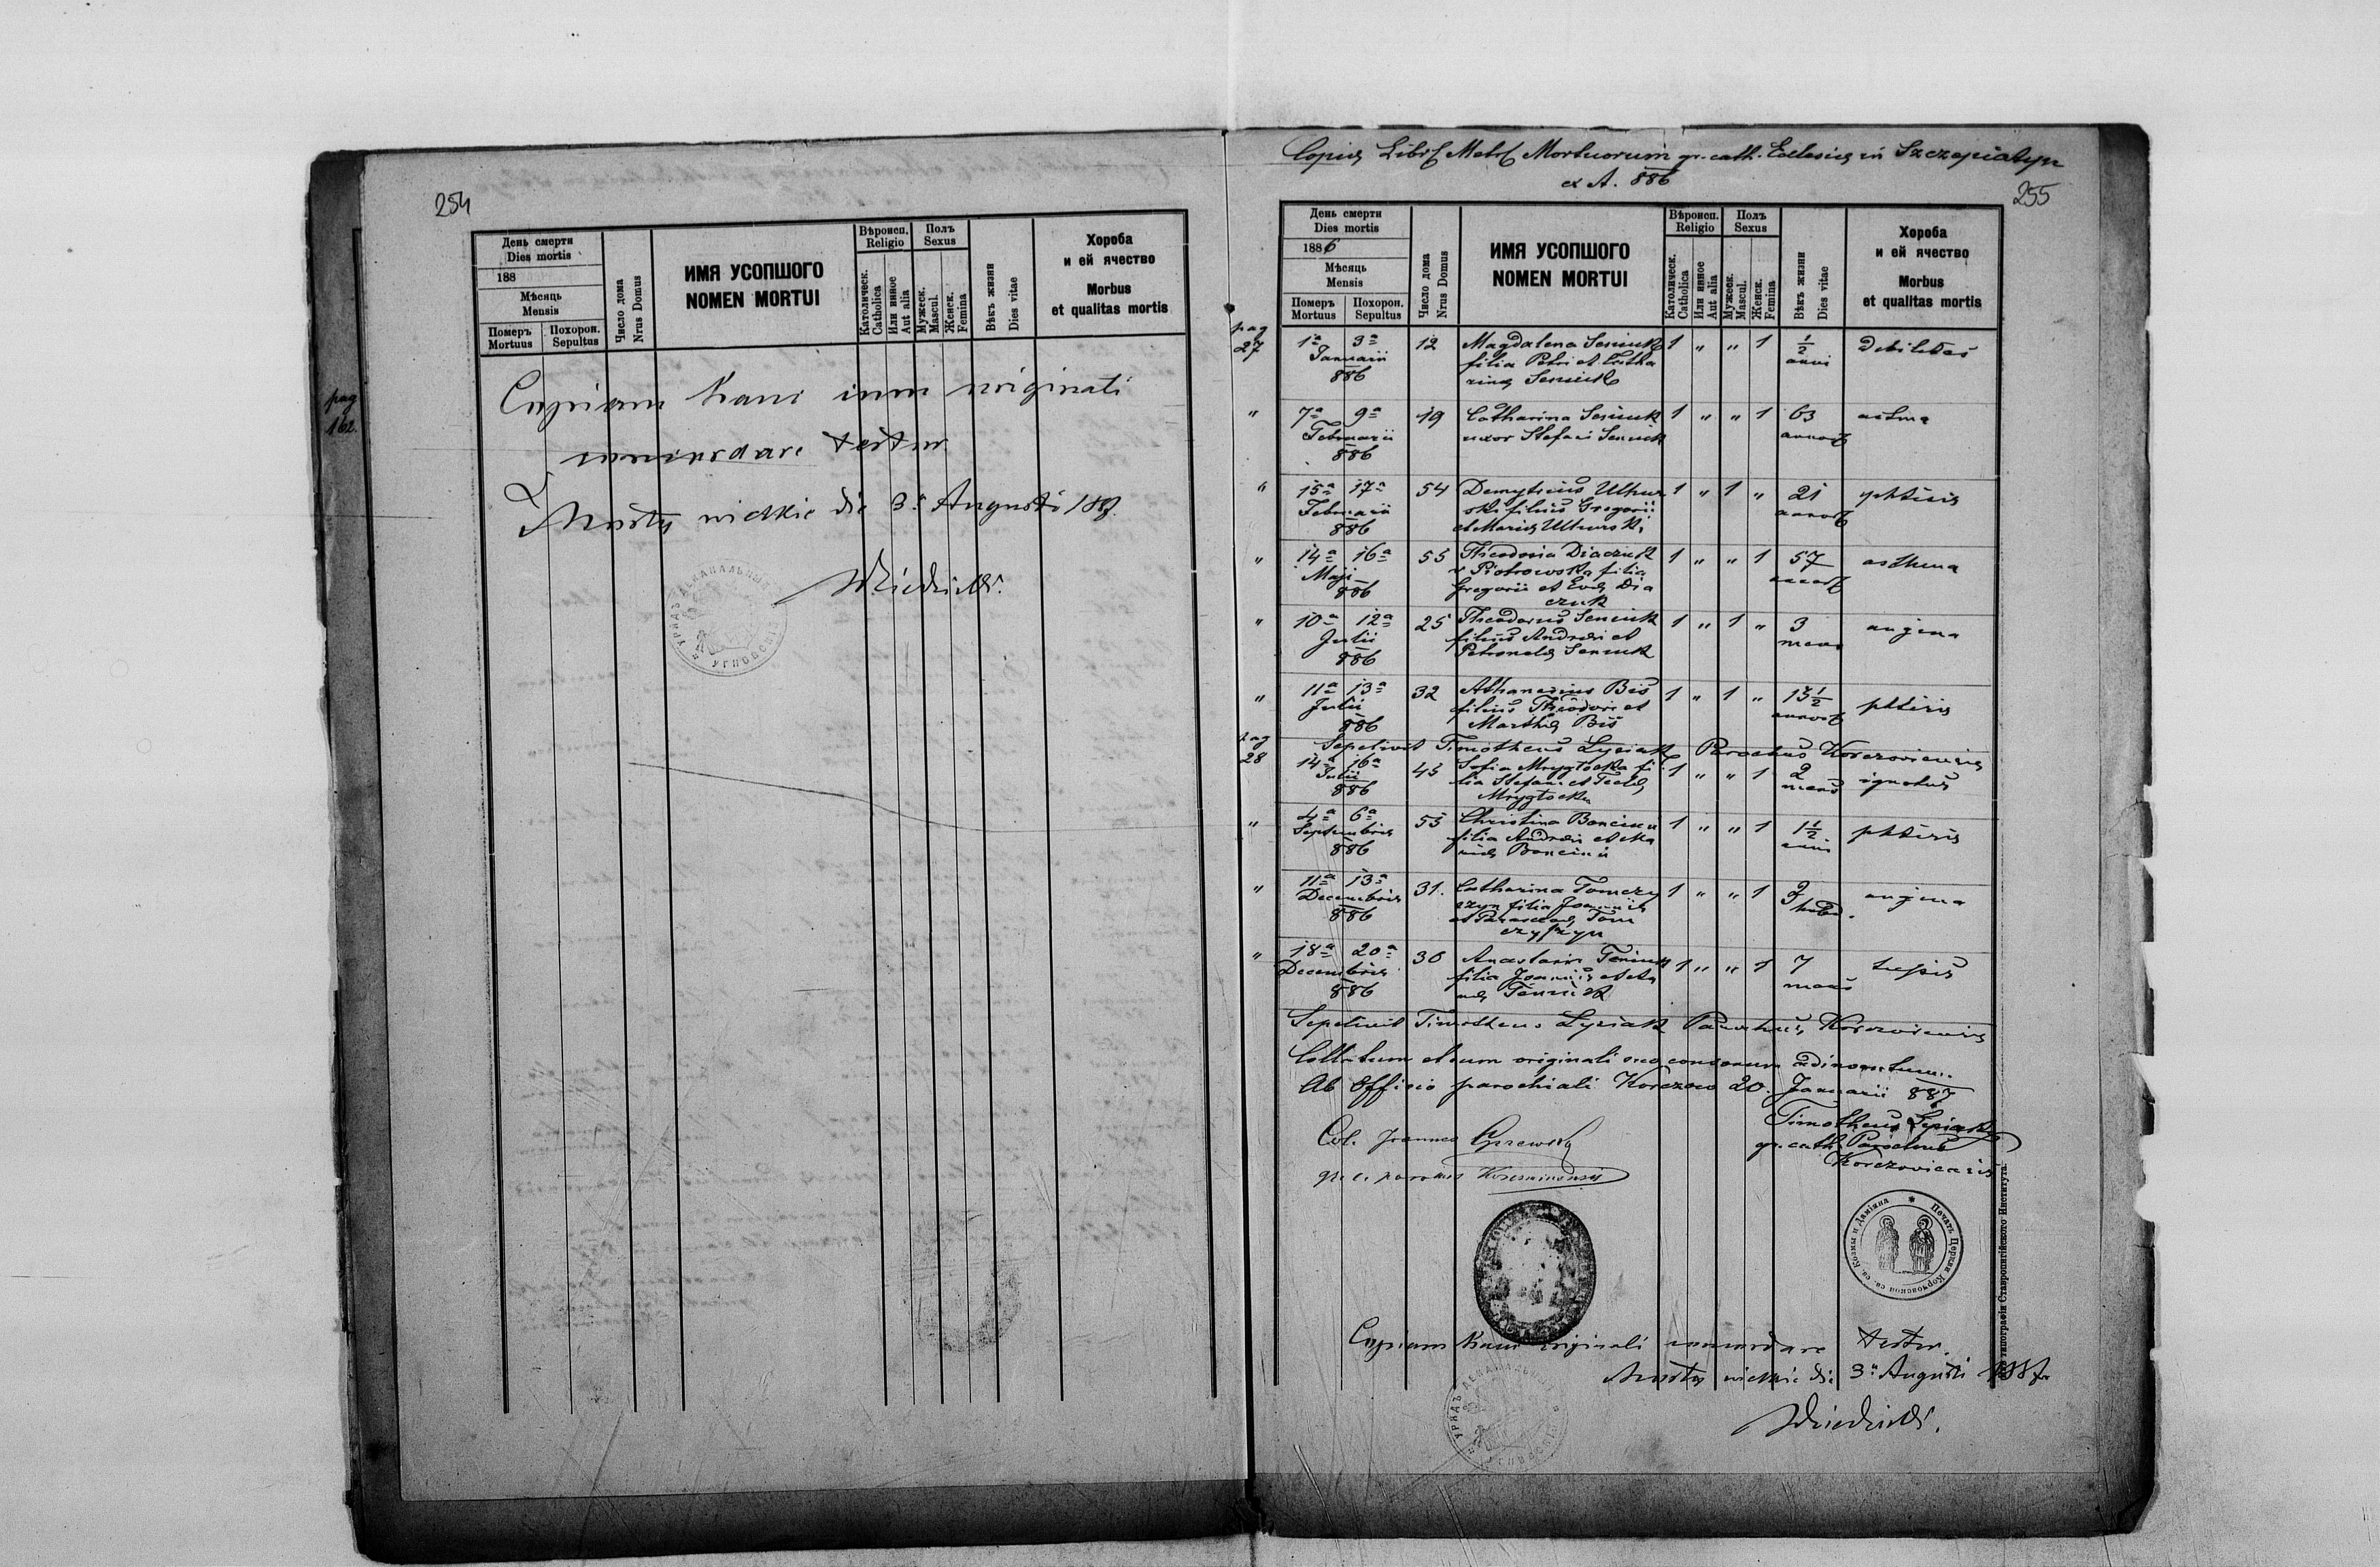 254
День смерти
Dies mortis
188
Мѣсяць
Mensis
Померъ
Mortuus
Похорон.
Sepultus
Число дома
Nrus Domus
ИМЯ УСОПШОГО
NOMEN MORTUI
Вѣроисп.
Religio
Католическ.
Catholica
Или инное
Aut alia
Полъ
Sexus
Мужеск.
Mascul.
Женск.
Femina
Вѣкъ жизни
Dies vitae
Хороба
и ей ячество
Morbus
et qualitas mortis
pag
162.
Copiam hanc cum originali
concordare testor.
Mosty wielkie die 3a Augusti 1887.
Copia Libri Metr Mortuorum gr. cath. Ecclesiae in Szczepiatyn
ex A. 886
255
День смерти
Dies mortis
1886
Мѣсяць
Mensis
Померъ
Mortuus
Похорон.
Sepultus
Число дома
Nrus Domus
ИМЯ УСОПШОГО
NOMEN MORTUI
Вѣроисп.
Religio
Католическ.
Catholica
Или инное
Aut alia
Полъ
Sexus
Мужеск.
Mascul.
Женск.
Femina
Вѣкъ жизни
Dies vitae
Хороба
и ей ячество
Morbus
et qualitas mortis
pag 27 1a 3a 12 Magdalena Seniuk 1 " " 1 1/2 Debilitas
Januarii filia Petri et Catha anni
886 rina Seniuk
" 7a 9a 19 Catharina Seniuk 1 " " 1 63 astma
Februarii uxor Stefani Seniuk annor
886
" 15a 17a 54 Demytrius Uhnow 1 " 1 " 21 phtisis
Februarii ski filius Gregorii annor
886 et Maria Uhnowski
" 14a 16a 55 Theodosia Diaczuk 1 " " 1 57 asthma
Maji v Piotrowska filia annor
886 Gregorii et Eva Dia
czuk
" 10a 12a 25 Theodorus Seniuk 1 " 1 " 3 angina
Julii filius Andrei et mens
886 Petronela Seniuk
" 11a 13a 32 Athanasius Bis 1 " 1 " 13 1/2 phtisis
Julii filius Theodori et annor
886 Martha Bis
Sepelivit Timotheus Lysiak Parochus Korczoviensis
pag 28 14a 16a 43 Sofia Mrygłocka fi 1 " " 1 2 ignotus
Julii lia Stefani et Tecla mens
886 Mrygłocka
" 4a 6a 53 Christina 1 " " 1 1 1/2 phtisis
Septembris filia Andrei et Ma anni
886 ria
" 11a 13a 31. Catharina Tomczy 1 " " 1 2 angina
Decembris szyn filia Joannis hebd.
886 et Parasceva Tom
czyszyn
" 18a 20a 30 Anastasia Teniuk 1 " " 1 7 tussis
Decembris filia Joannis et An mens
886 na Teniuk
Sepelivit Timotheus Lysiak Parochus Korczoviensis
originali suo
Ab Officio parochiali Korczow 20. Januarii 887
Timotheus Lysiak
gr. cath. Parochus
Korczoviensis
Col. Joannes
gr. c. parochus
Печать Церкви Корчовской св. Козмы и Даміяна
Copiam hanc originali concordare testor.
Mosty wielkie die 3a Augusti 1887
УРЯДЪ ДЕКАНАЛЬНЫЙ УГНОВСКІЙ
Ставропигійского Института.